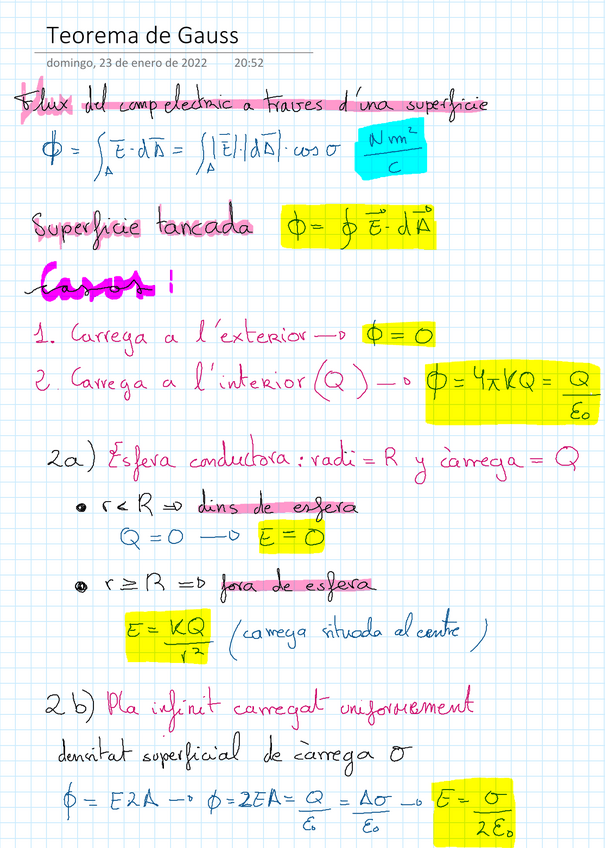 Teorema de Gauss
domingo, 23 de enero de 2022 20:52
Flux del camp electric a traves d'una superficie
ϕ = ∫_A E̅·dA̅ = ∫_A |E̅|·|dA̅|·cos σ Nm²/C
Superficie tancada ϕ = ∮ E⃗·dA⃗
Casos!
1. Carrega a l'exterior → ϕ = 0
2. Carrega a l'interior (Q) → ϕ = 4πKQ = Q/ε₀
2a) Esfera conductora: radi = R y càrrega = Q
• r < R ⇒ dins de esfera
Q = 0 → E = 0
• r ≥ R ⇒ fora de esfera
E = KQ/r² (carrega situada al centre)
2b) Pla infinit carregat uniformement
densitat superficial de càrrega σ
ϕ = E2A → ϕ = 2EA = Q/ε₀ = Aσ/ε₀ → E = σ/2ε₀